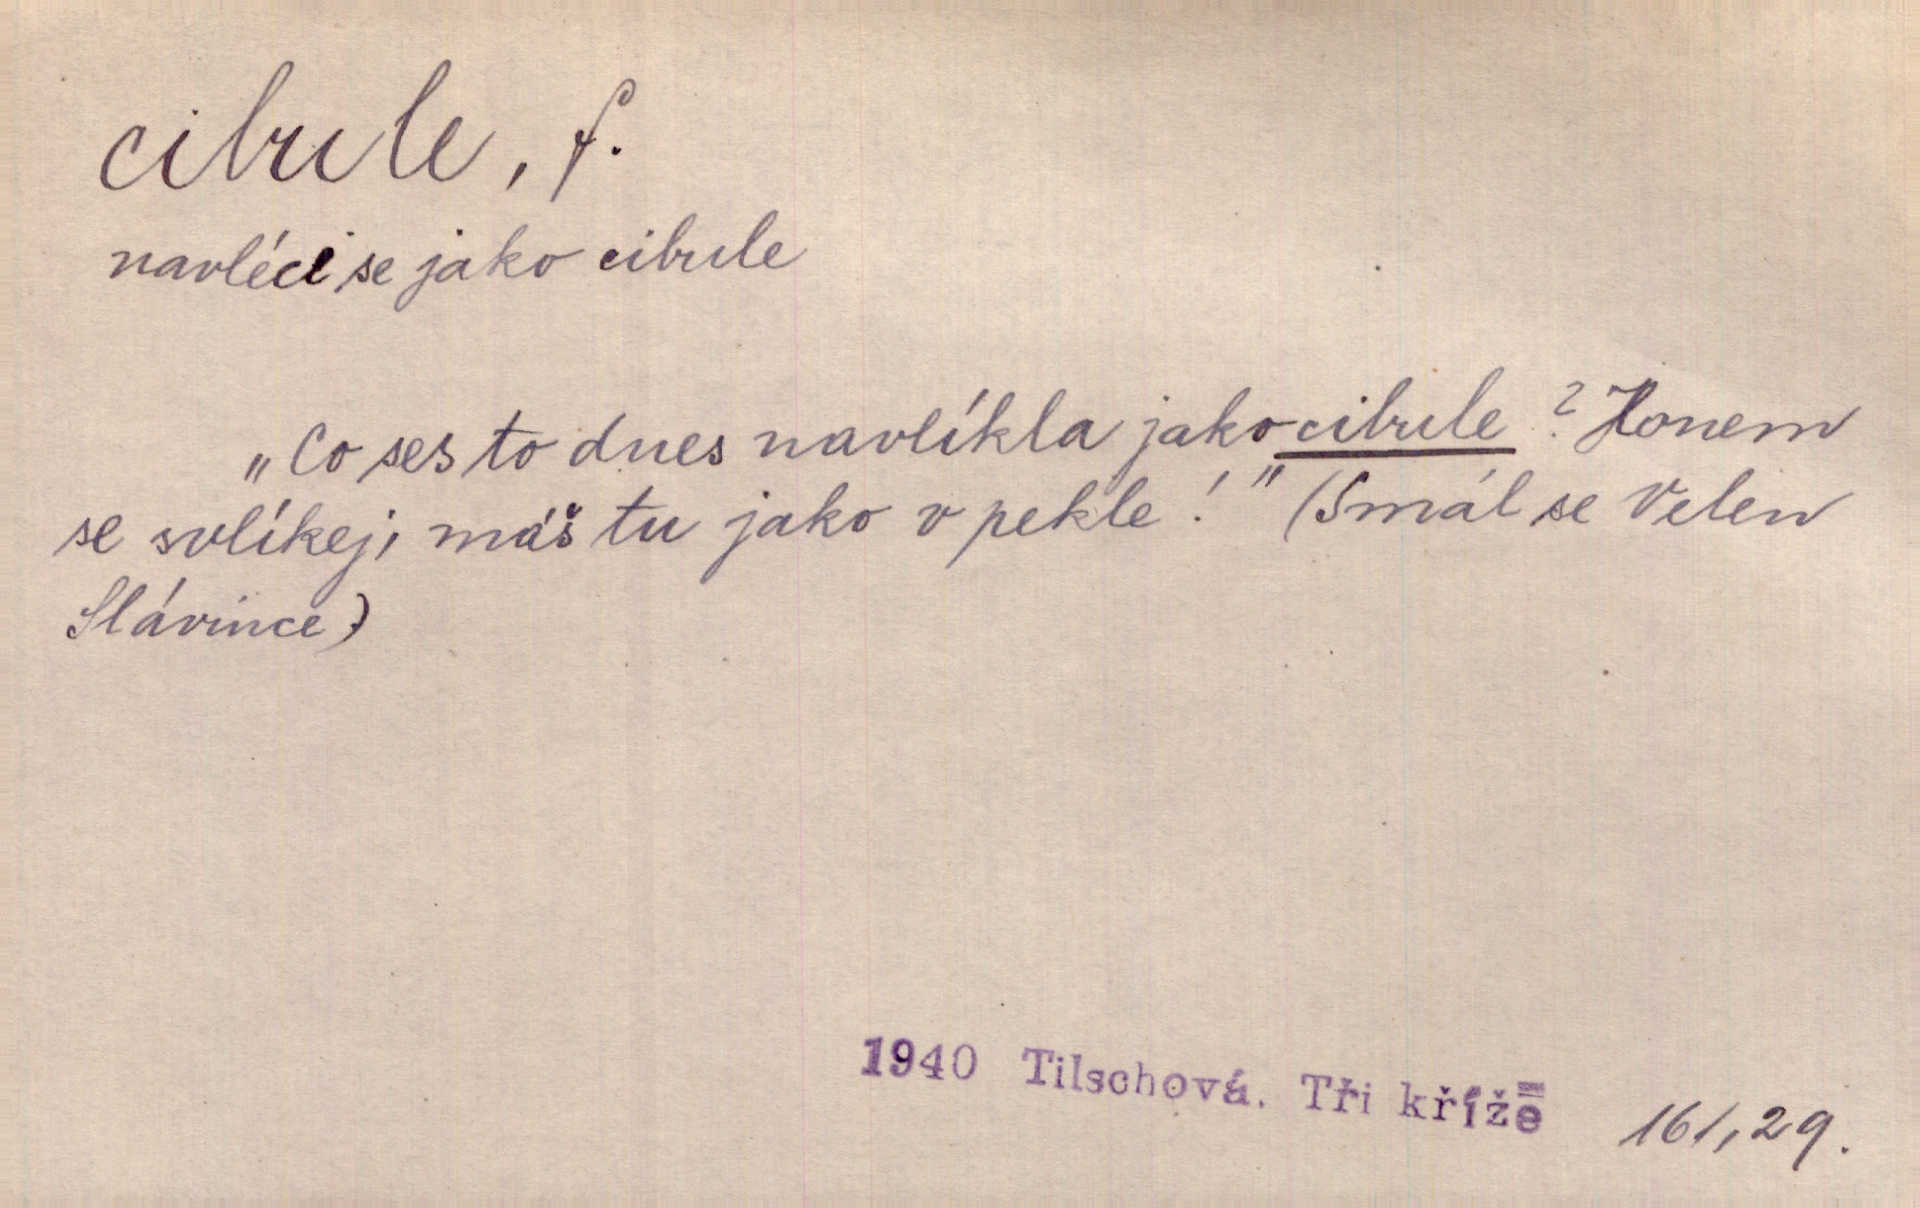 cibule, f.
navléci se jako cibule
„Co ses to dnes navlíkla jako cibule? Honem
se svlíkej, máš tu jako v pekle!" (Smál se Velen
Slávince)
1940 Tilschová. Tři kříže 161,29.